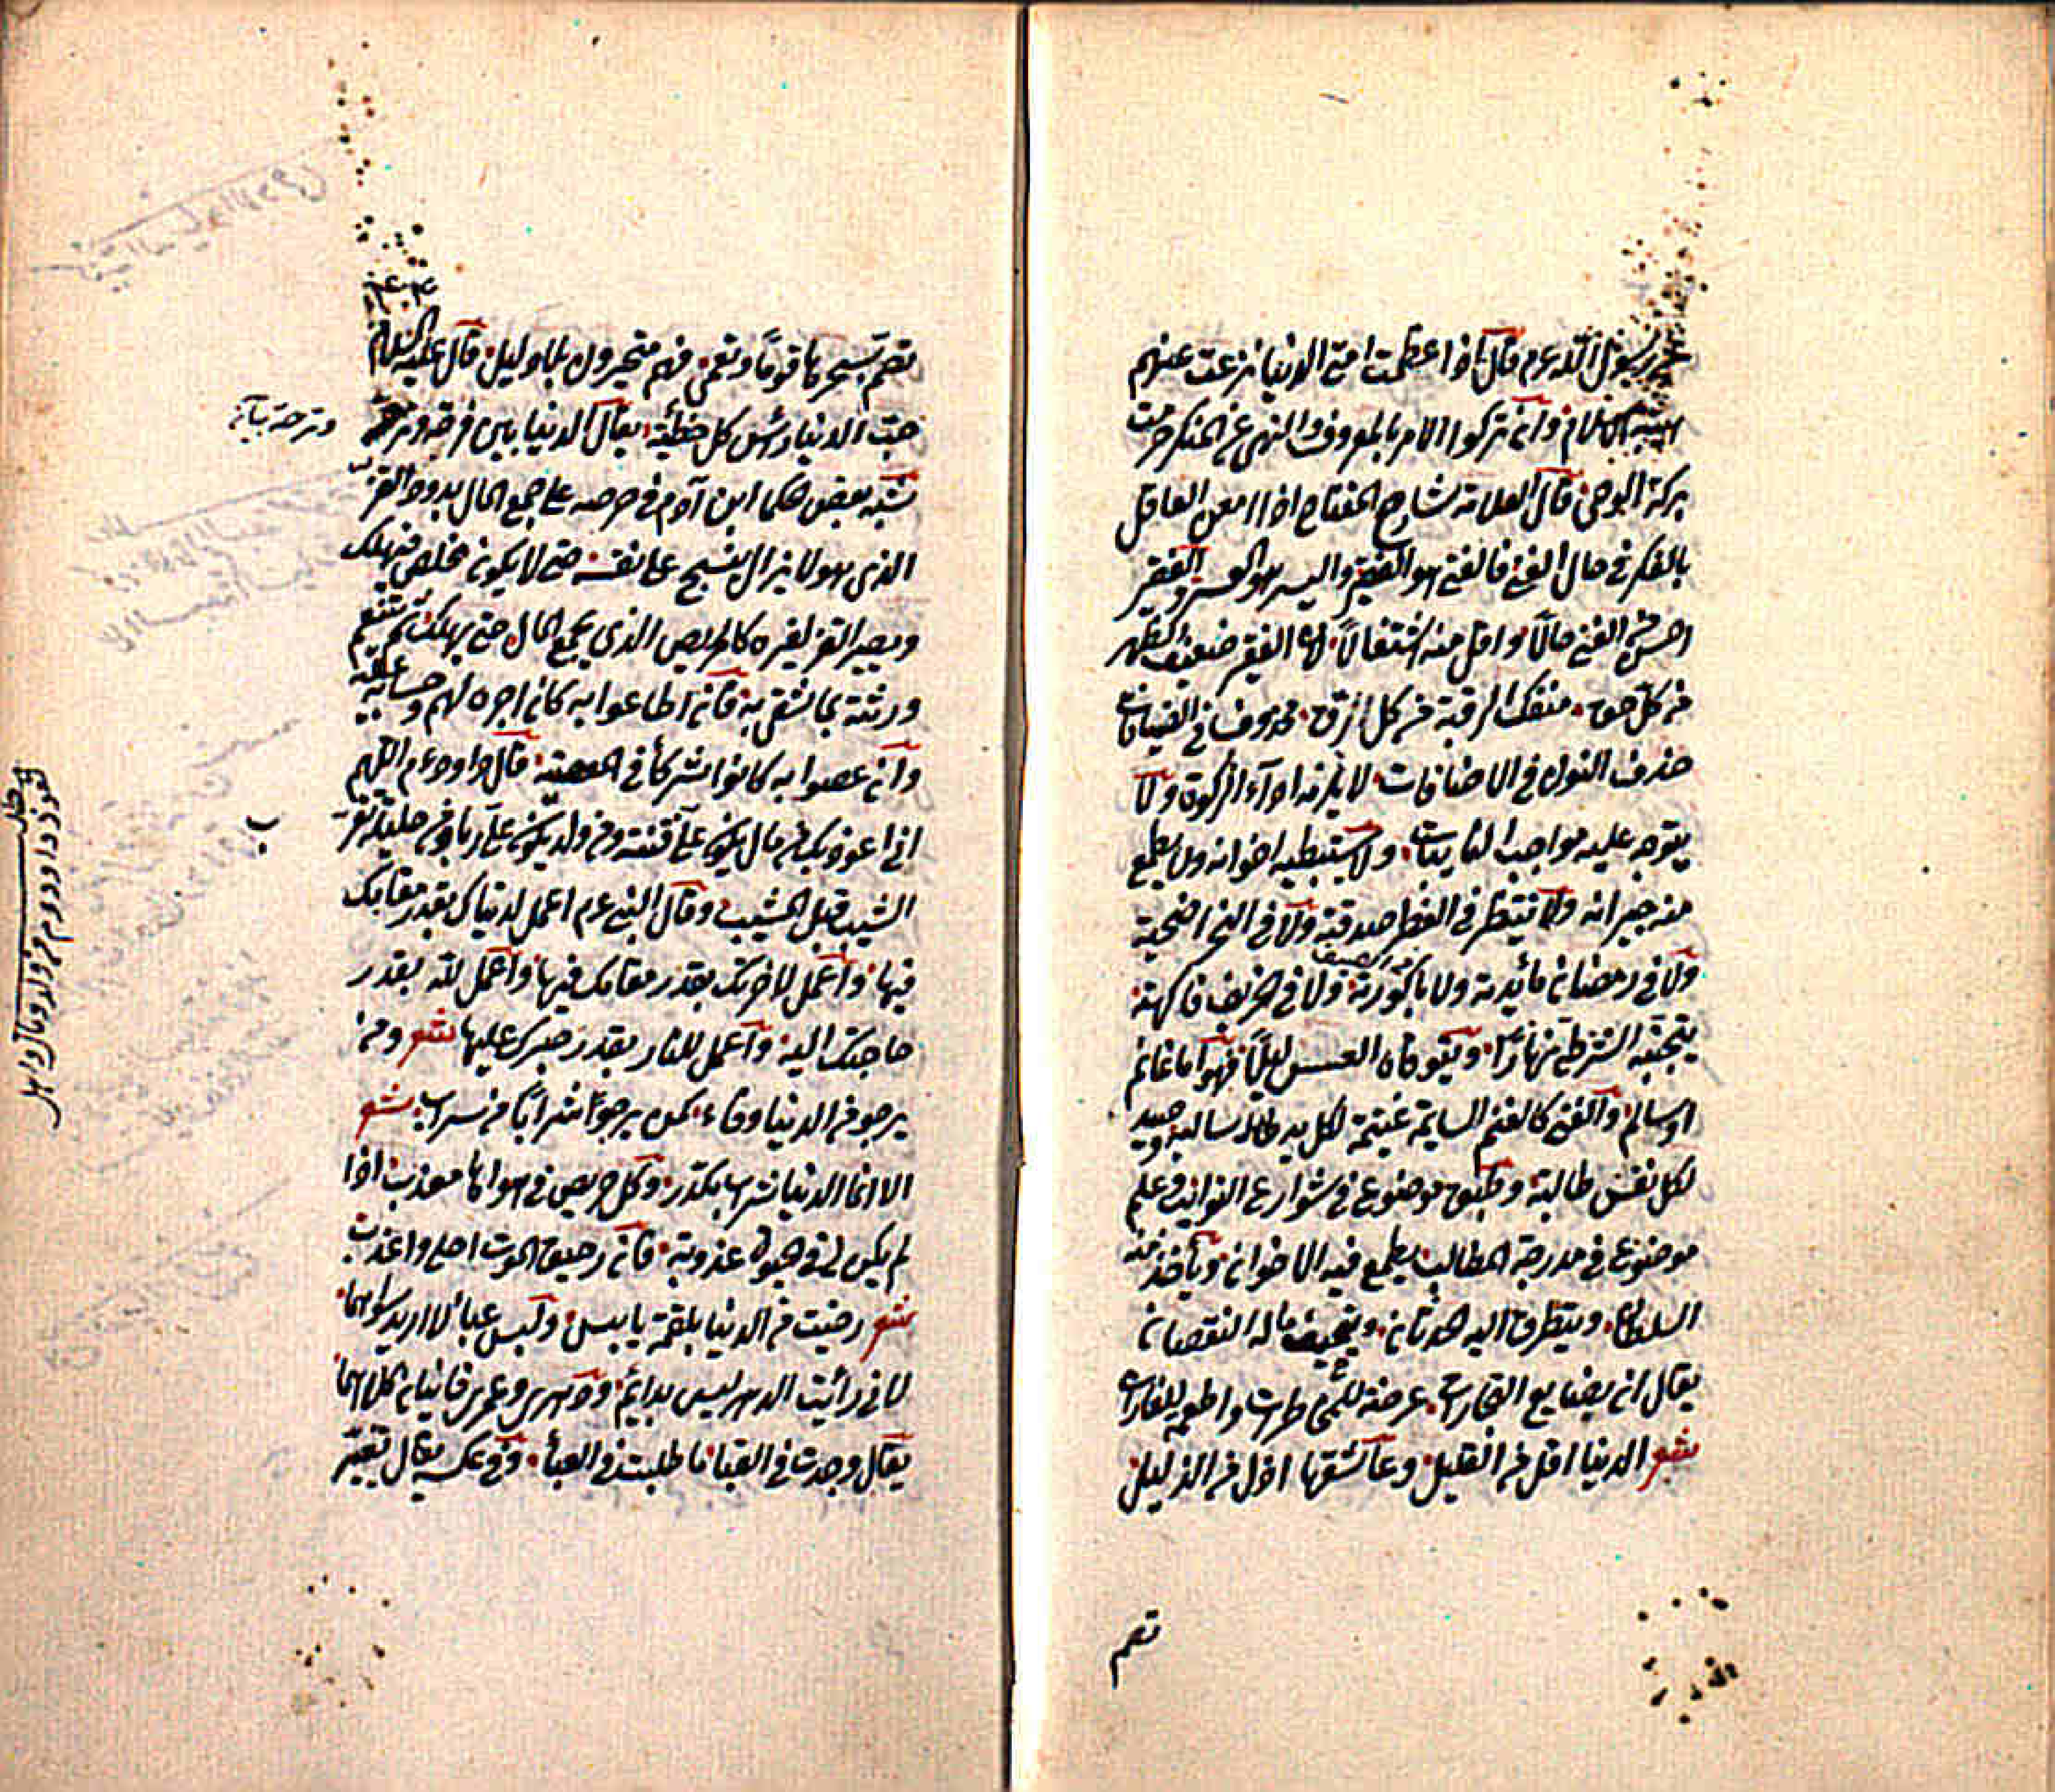 عن رسول الله عم قال اذا عظمت امتي الدنيا نزعت عنهم
هيبة الاسلام وان تركوا الامر بالمعروف والنهى عن المنكر حرمت
بركة الوحى قال العلامة شارح المفتاح اذا امعن العاقل
بالفكر في حال الغنى فالغنى هو الفقر واليسر هو العسر والفقير
احسن من الغنى حالاً واقل منه اشتغالاً لان الفقير خفيف الظهر
من كل حق منفك الرقبة من كل رق محذوف في الضيافات
حذف النون في الاضافات لا يلزمه اداء الزكوة ولا
يتوجه عليه مواجب النايبات ولا يستبطيه اخوانه ولا يطمع
منه جيرانه ولا ينتظر في الفطر صدقته ولا في النحر اضحيته
ولا في رمضان مائدته ولا باكورته ولا في الخريف فاكهته
يتجنبه الشرطى نهاراً ويتوقاه العسس ليلاً فهو اما غانم
او سالم والغنى كالغنم السايمة غنيمة لكل يد سالبة وصيد
لكل نفس طالبة وطبق موضوع في شوارع النوائب وعلم
موضوع في مدرجة المطالب يطمع فيه الاخوان ويأخذ منه
السلطان ويتطرق اليه الحدثان ويحيف ماله النقصان
يقال ان بضايع التجارات عرضة للمخاطرات واطعمة للغارات
شعر الدنيا اقل من القليل وعاشقها اذل من الذليل
تصم
تصم بسحرها قوماً وتعمى فهم متحيرون بلا دليل قال عليه السلام
حب الدنيا رأس كل خطيئة يقال الدنيا بين فرحة وترحة
وترحة بيانه
شبه بعض الحكما ابن آدم في حرصه على جمع المال بدود القز
الذى هو لا يزال ينسج على نفسه حتى لا يكون مخلص فيهلك
ويصير القز لغيره كالحريص الذى يجمع المال حتى يهلك ثم يتنعم
ورثته بما شقى به فان اطاعوا به كان اجره لهم وحسابه عليه
وان عصوا به كانوا شركاً في المعصية قال داود عم اللهم
انى اعوذ بك من مال يكون على فتنة ومن ولد يكون على ربا ومن حليلة تقرب
الشيب قبل المشيب وقال النبى عم اعمل لدنياك بقدر مقامك
فيها واعمل لاخرتك بقدر مقامك فيها واعمل لله بقدر
حاجتك اليه واعمل للنار بقدر صبرك عليها شعر ومن
يرجو من الدنيا وفاء كمن يرجو شراباً من سراب شعر
الا انما الدنيا شراب مكدر وكل حريص في هواها معذب اذا
لم يكن لى في الحيوة عذوبة فان رحيق الموت احلى واعذب
شعر رضيت من الدنيا بلقمة يابس ولبس عبا لا اريد سواهما
لانى رأيت الدهر ليس بدايم ودهرى وعمرى فانيان كلاهما
يقال وجدت في القبا ما طلبت في العبأ وفى عكسه يقال
تعوذ داود عم من ولد ومال واهل